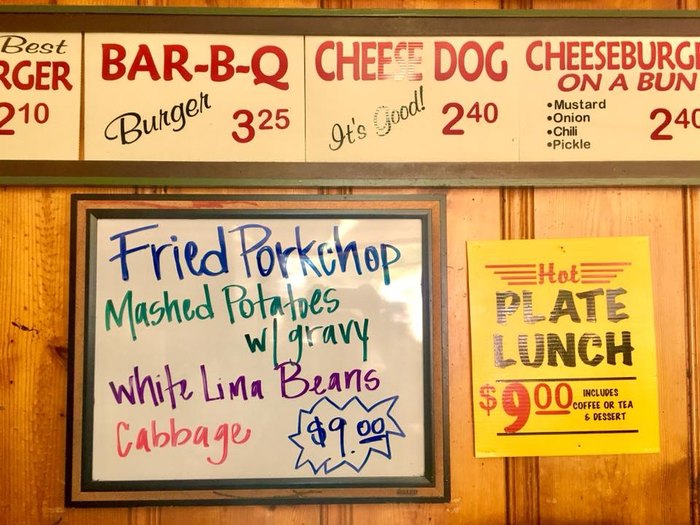 Best
RGER
210
BAR-B-Q
Burger
325
CHEESE DOG
It's Good!
240
CHEESEBURGE
ON A BUN
•Mustard
•Onion
•Chili
•Pickle
240
Fried Porkchop
Mashed Potatoes
w/gravy
White Lima Beans
Cabbage
$9.00
Hot
PLATE
LUNCH
$900
INCLUDES
COFFEE OR TEA
& DESSERT